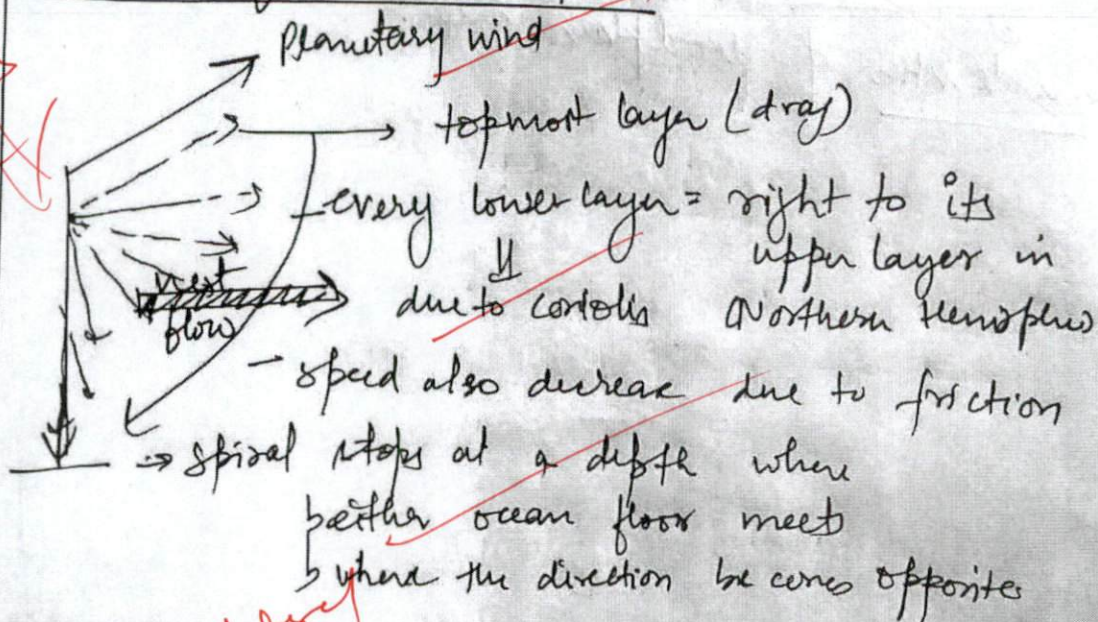 Planetary wind
topmost layer (drag)
every lower layer = right to its
upper layer in
due to coriolis Northern Hemisphere
net
flow
- speed also decreas due to friction
→ spiral stops at a depth where
either ocean floor meets
where the direction becomes opposite